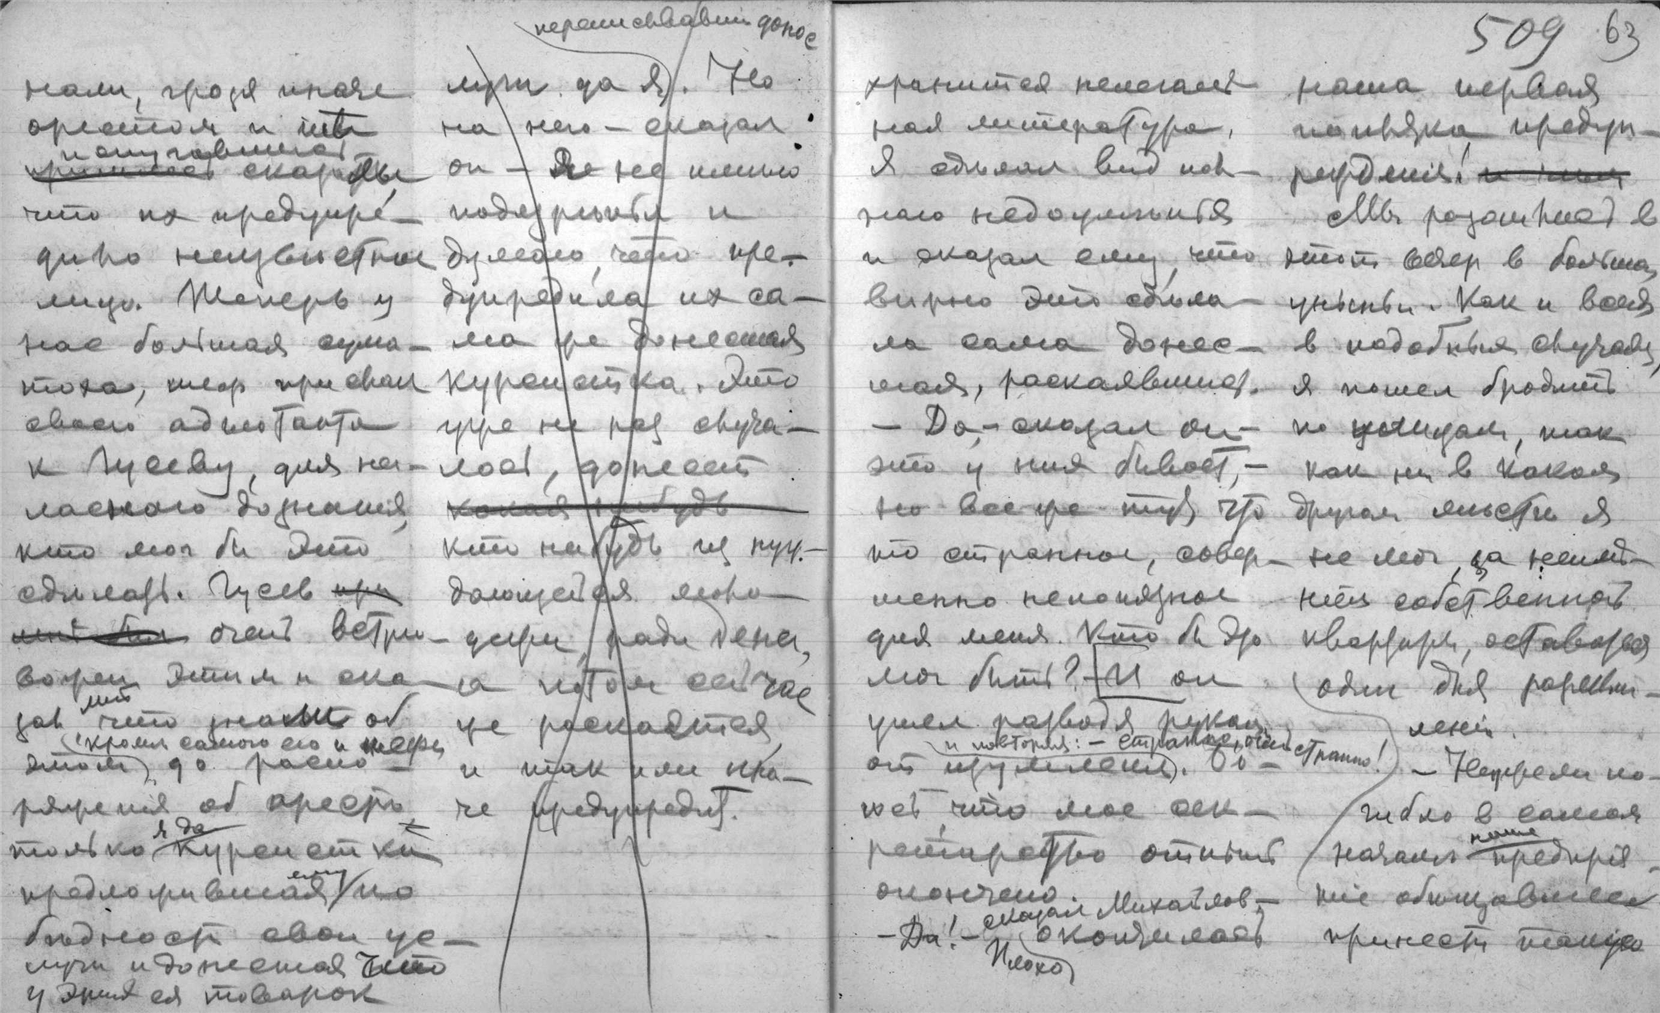 509 63
нали, грозя иначе
арестом и
испугавшись
сказалъ
что их предупре-
дило неизвестное
лицо. Теперь у
нас большая сума-
тоха, шеф прислал
своего адъютанта
к Гусеву, для не-
гласного дознания,
кто мог бы это
сделать. Гусев
очень встре-
вожен этим и ска-
зал мне что знали об
(кроме самого его и шефа)
этом до распо-
ряжения об аресте
только я да курсистка
предложившая ему по
бедности свои ус-
луги и донесшая что
у этих ея товарок
переписывавший донос
луги да я). Но
на него – сказал
он – я не имею
подозрения и
думаю, что пре-
дупредила их са-
ма же донесшая
курсистка. Это
уже не раз случа-
лось, донесет
какая нибудь
кто нибудь из нуж-
дающейся моло-
дежи, ради денег,
а потом сейчас
же раскается
и так или ина-
че предупредит.
хранится нелегаль-
ная литература,
Я сделал вид пол-
ного недоуменья
и сказал ему, что
верно это сдела-
ла сама донес-
шая, раскаявшись.
– Да, – сказал он –
это у них бывает, –
но все же тут что
то странное, совер-
шенно непонятное
для меня. Кто бы это
мог быть? – И он
ушел разводя руками
и повторяя: – странно, очень странно!
от изумления). Бо-
юсь, что мое сек-
ретарство отныне
окончено.
– Да! – сказал Михайлов, –
окончилось
Плохо
наша первая
попытка предуп-
реждения!
Мы разошлись в
этот вечер в большом
уныньи. Как и всегда
в подобных случаях,
я пошел бродить
по улицам, так
как ни в каком
другом месте я
не мог, за неиме-
нием собственной
квартиры, оставаться
один для размыш-
лений.
– Неужели по-
гибло в самом
начале наше предприя-
тие обещавшее
принести такую